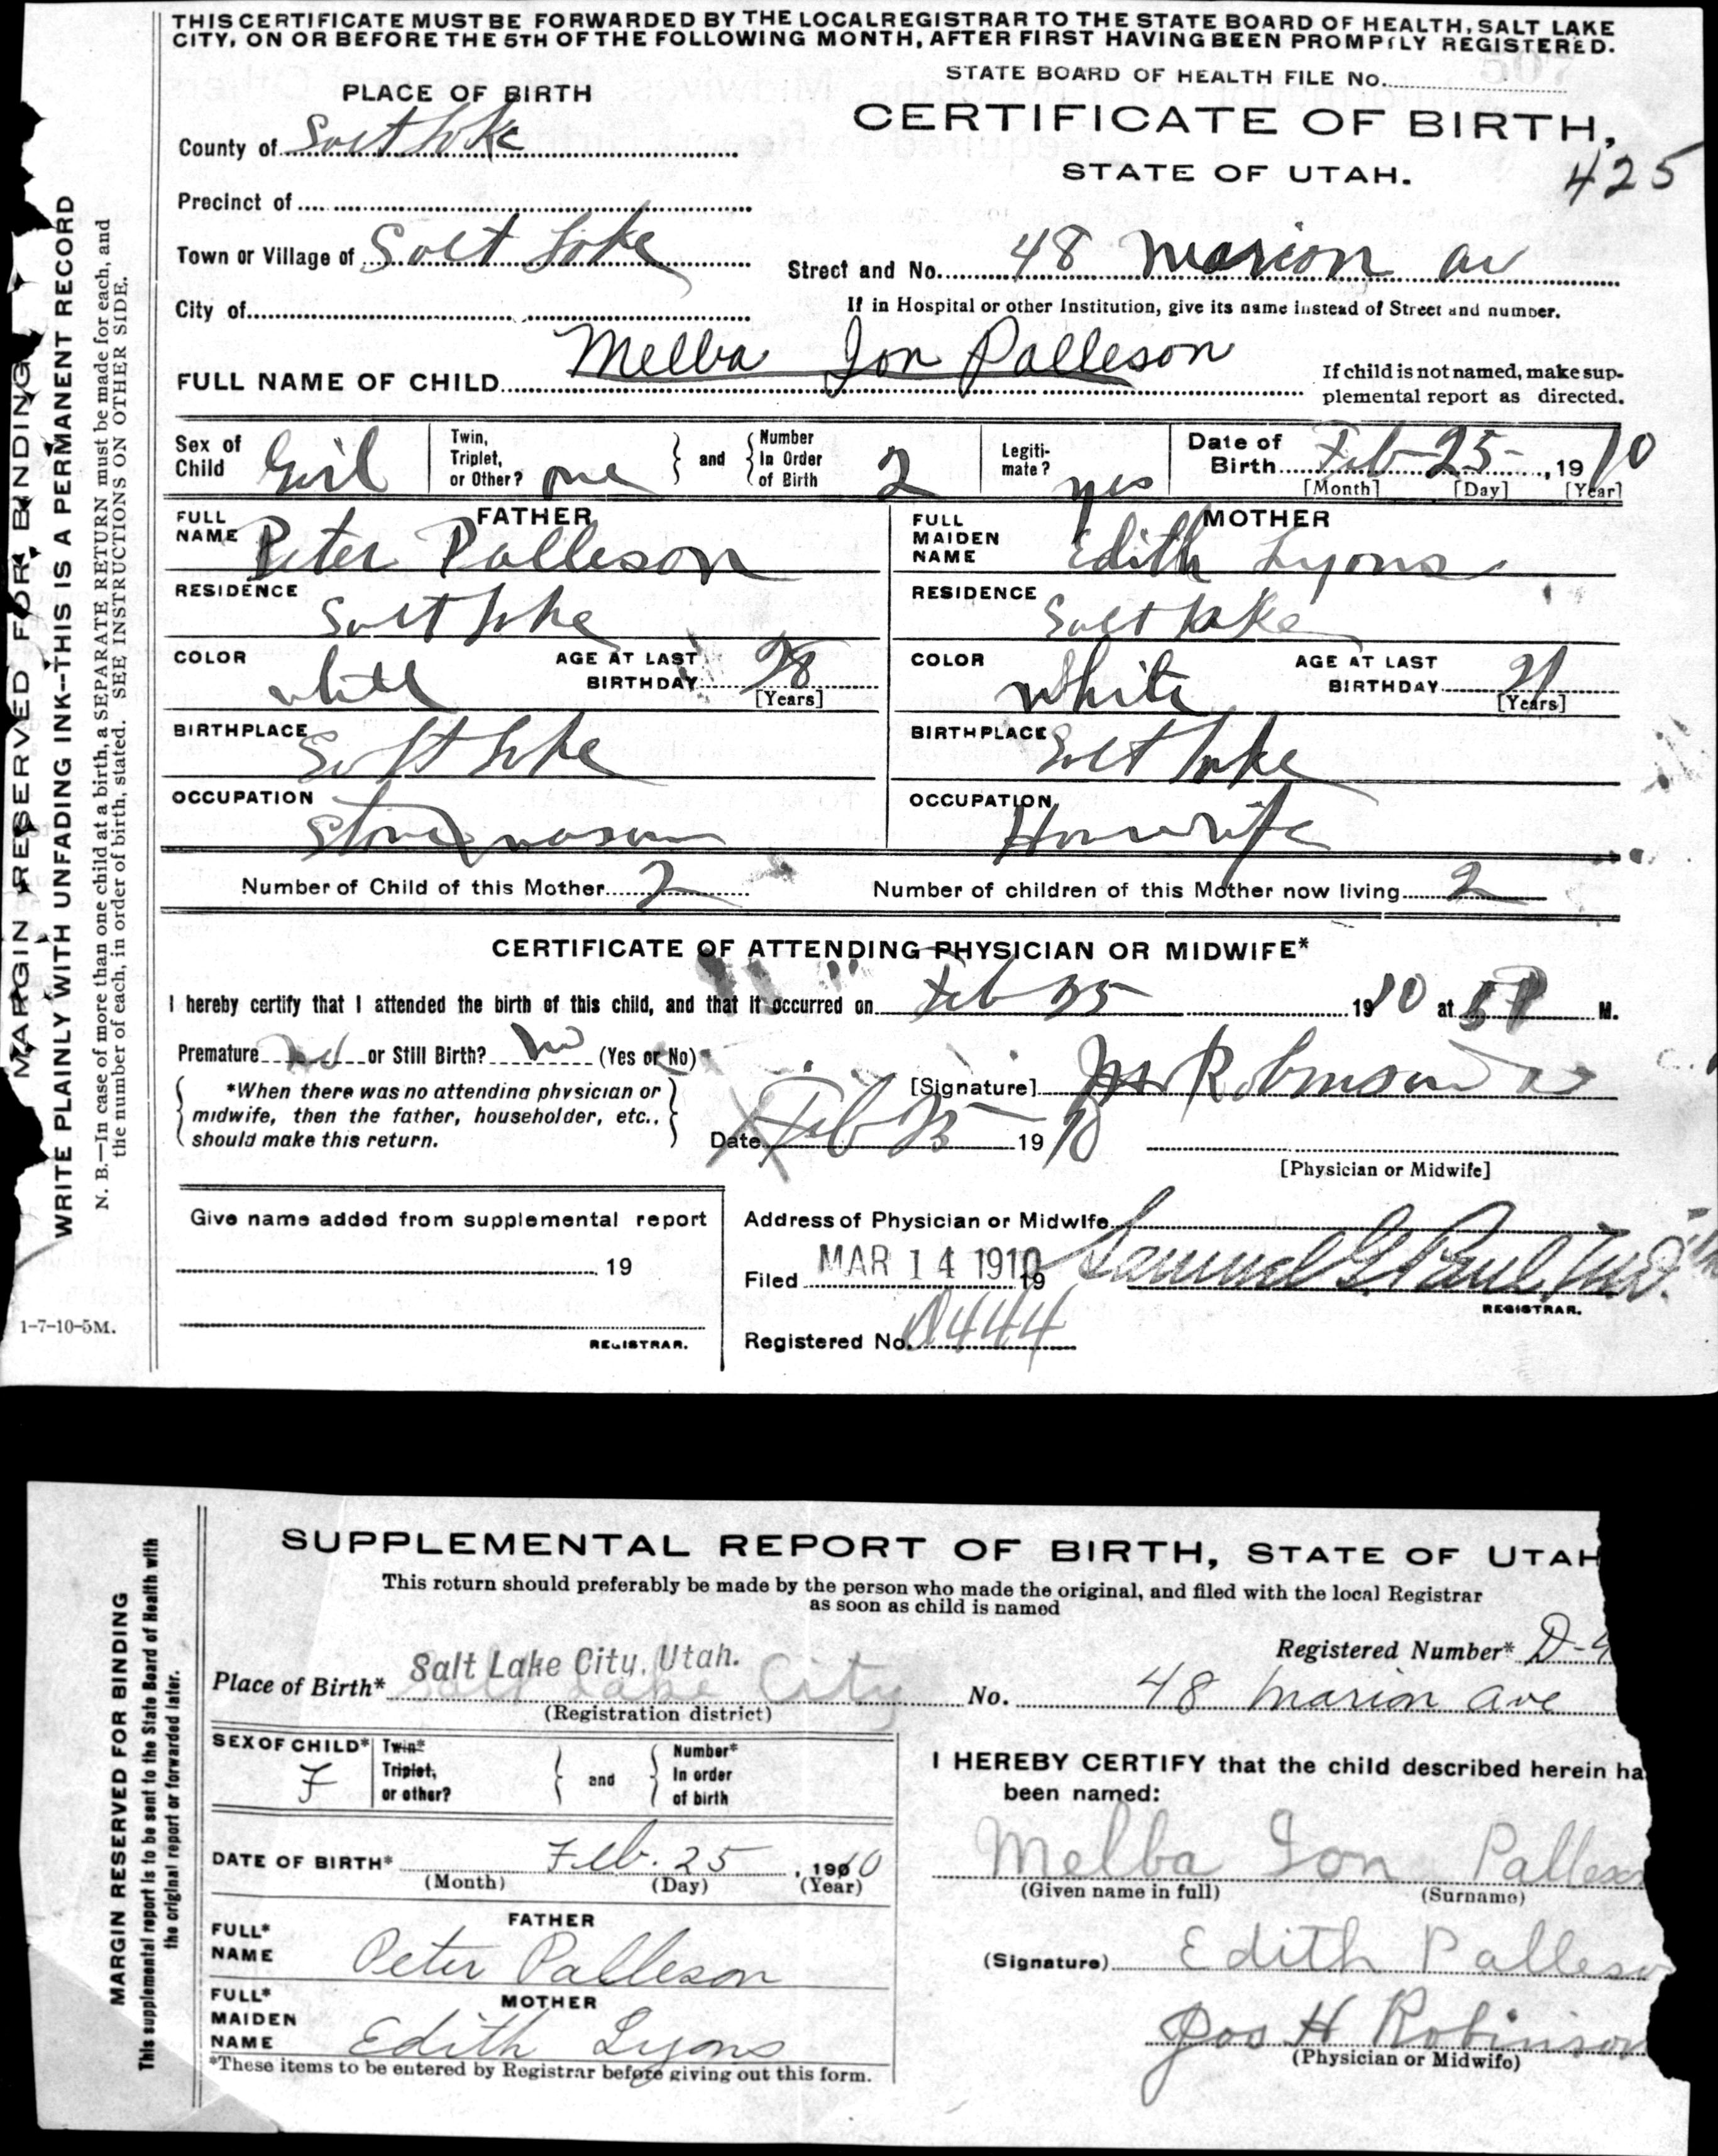 THIS CERTIFICATE MUST BE FORWARDED BY THE LOCAL REGISTRAR TO THE STATE BOARD OF HEALTH, SALT LAKE
CITY, ON OR BEFORE THE 5TH OF THE FOLLOWING MONTH, AFTER FIRST HAVING BEEN PROMPTLY REGISTERED.
STATE BOARD OF HEALTH FILE No.
PLACE OF BIRTH
CERTIFICATE OF BIRTH,
County of Salt Lake
STATE OF UTAH.
425
Precinct of
Town or Village of Salt Lake
Street and No. 48 Marion av
City of
If in Hospital or other Institution, give its name instead of Street and number.
FULL NAME OF CHILD Melba Ion Palleson
If child is not named, make sup-
plemental report as directed.
Sex of Child Girl
Twin, Triplet, or Other? one
and
Number In Order of Birth 2
Legiti-mate? yes
Date of Birth Feb 25 , 1910
[Month] [Day] [Year]
FATHER
FULL NAME Peter Palleson
MOTHER
FULL MAIDEN NAME Edith Lyons
RESIDENCE Salt Lake
RESIDENCE Salt Lake
COLOR white
AGE AT LAST BIRTHDAY 28
[Years]
COLOR White
AGE AT LAST BIRTHDAY 21
[Years]
BIRTHPLACE Salt Lake
BIRTHPLACE Salt Lake
OCCUPATION Stone mason
OCCUPATION Housewife
Number of Child of this Mother 2
Number of children of this Mother now living 2
CERTIFICATE OF ATTENDING PHYSICIAN OR MIDWIFE*
I hereby certify that I attended the birth of this child, and that it occurred on Feb 25 1910 at 5 P M.
Premature or Still Birth? no (Yes or No)
*When there was no attending physician or
midwife, then the father, householder, etc.,
should make this return.
[Signature] Robinson
Date Feb 25 1910
[Physician or Midwife]
Give name added from supplemental report
19
REGISTRAR.
Address of Physician or Midwife
Filed MAR 14 1910 19
Samuel G. Paul, M.D.
REGISTRAR.
Registered No. D444
1-7-10-5M.
MARGIN RESERVED FOR BINDING
WRITE PLAINLY WITH UNFADING INK--THIS IS A PERMANENT RECORD
N. B.—In case of more than one child at a birth, a SEPARATE RETURN must be made for each, and
the number of each, in order of birth, stated. SEE INSTRUCTIONS ON OTHER SIDE.
SUPPLEMENTAL REPORT OF BIRTH, STATE OF UTAH
This return should preferably be made by the person who made the original, and filed with the local Registrar
as soon as child is named
Registered Number* D-4
Place of Birth* Salt Lake City, Utah.
Salt Lake City
(Registration district)
No. 48 Marion ave
SEX OF CHILD* F
Twin* Triplet, or other?
and
Number* In order of birth
I HEREBY CERTIFY that the child described herein ha
been named:
DATE OF BIRTH* Feb. 25 , 1910
(Month) (Day) (Year)
Melba Ion Palleson
(Given name in full) (Surname)
FATHER
FULL* NAME Peter Palleson
(Signature) Edith Palleso
MOTHER
FULL* MAIDEN NAME Edith Lyons
Jos H Robinson
(Physician or Midwife)
*These items to be entered by Registrar before giving out this form.
MARGIN RESERVED FOR BINDING
This supplemental report is to be sent to the State Board of Health with
the original report or forwarded later.